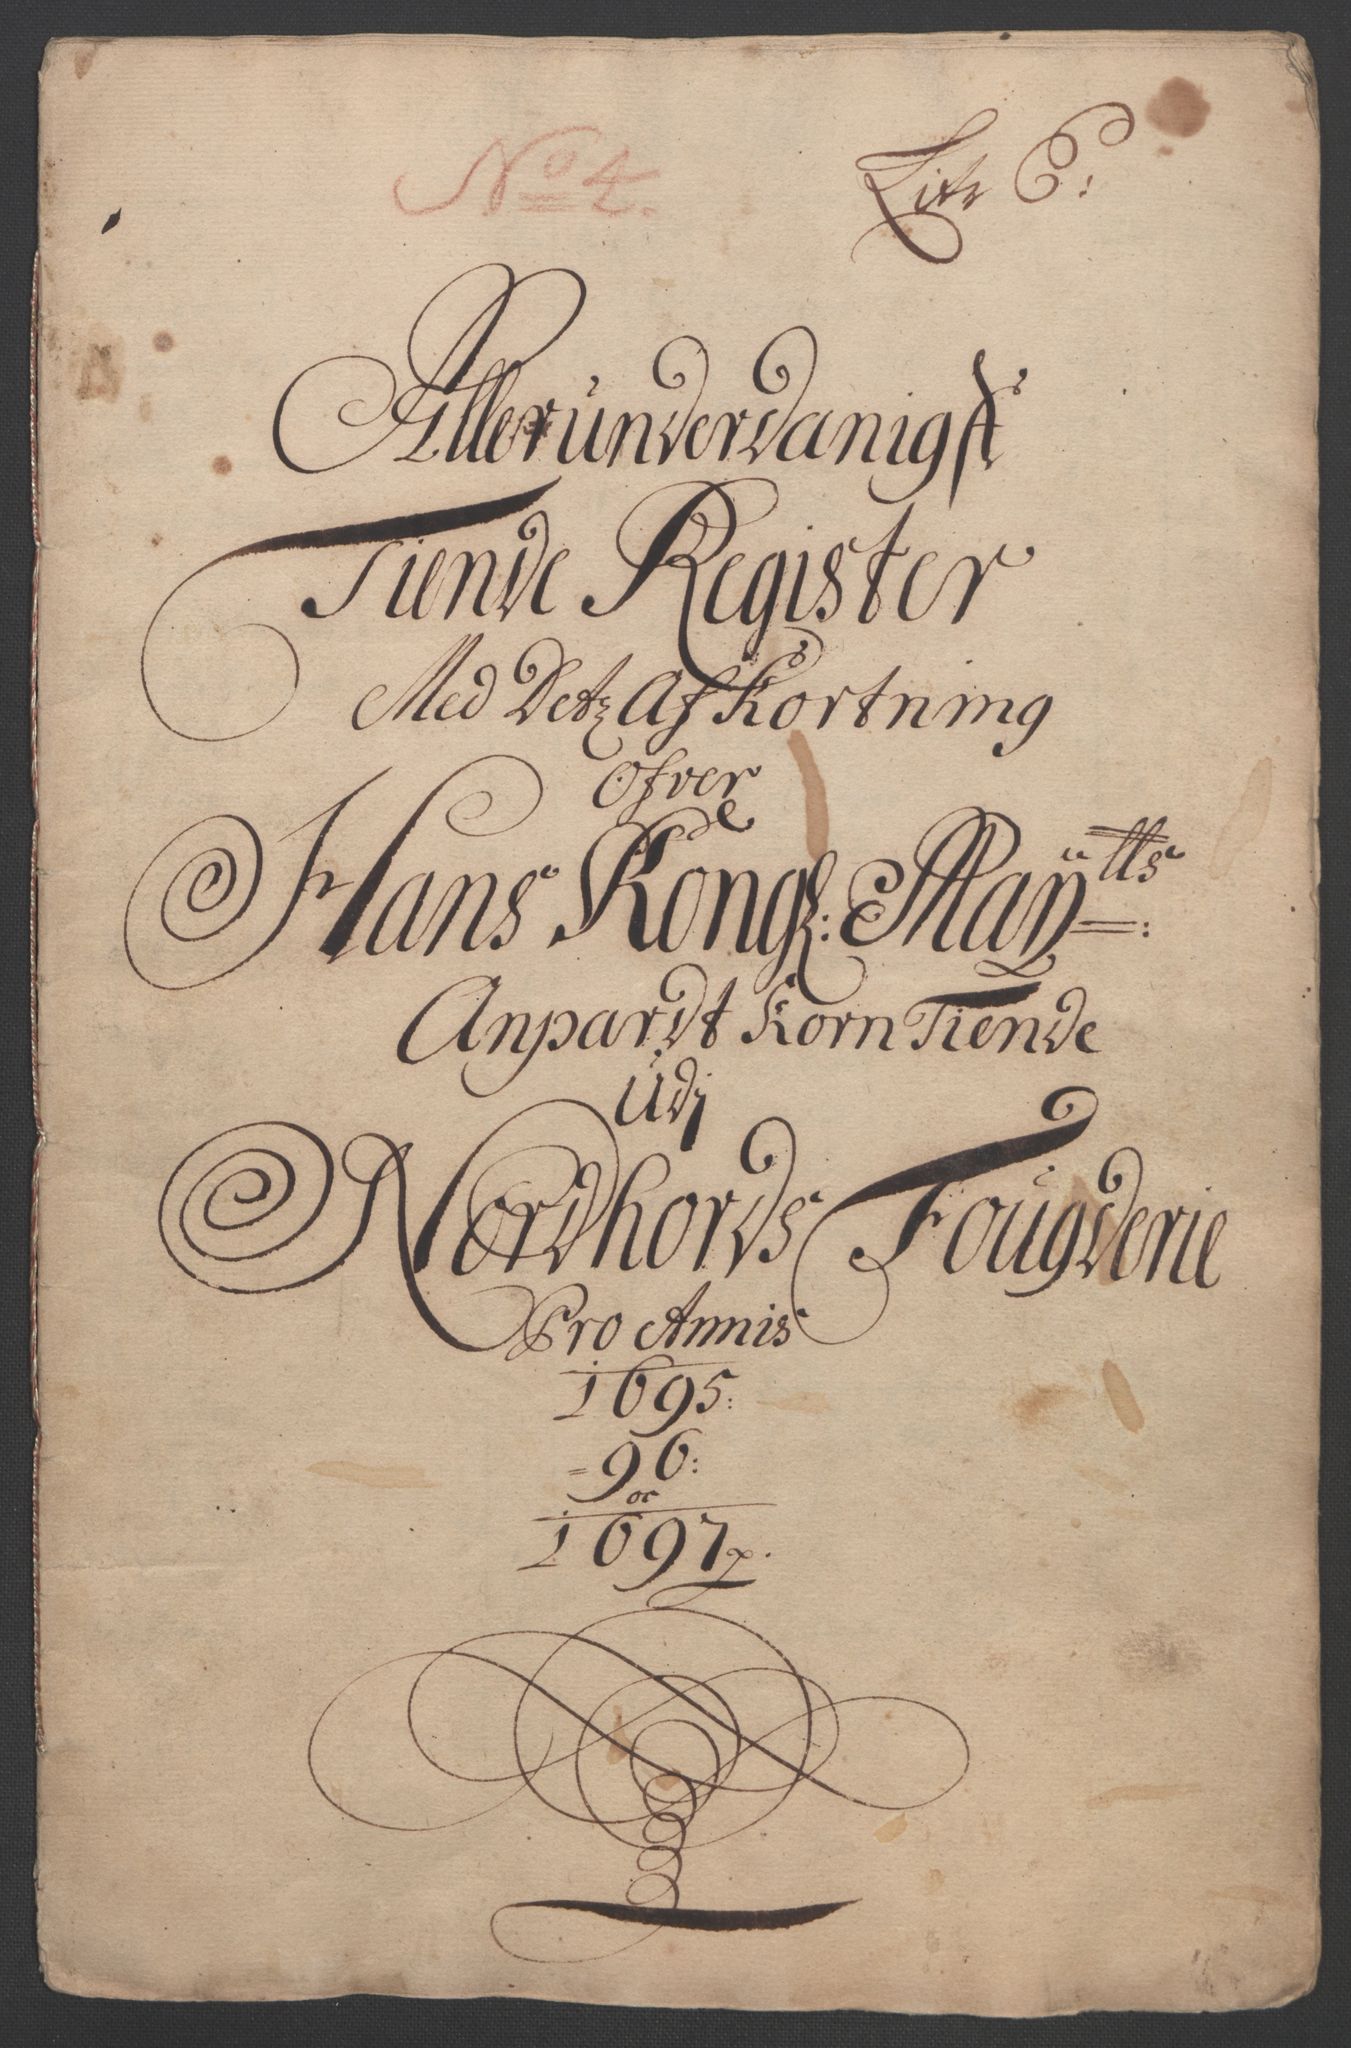 No 4.
Litr C:
Alleründerdanigst
Tiende Register
Med Detz Af Kortning
Ofver
Hans Kongl: Maÿtts:
Anpardt Korn Tiende
Udj
Nordhords Fougderie
Pro Annis
1695:
=96:
oc
1697